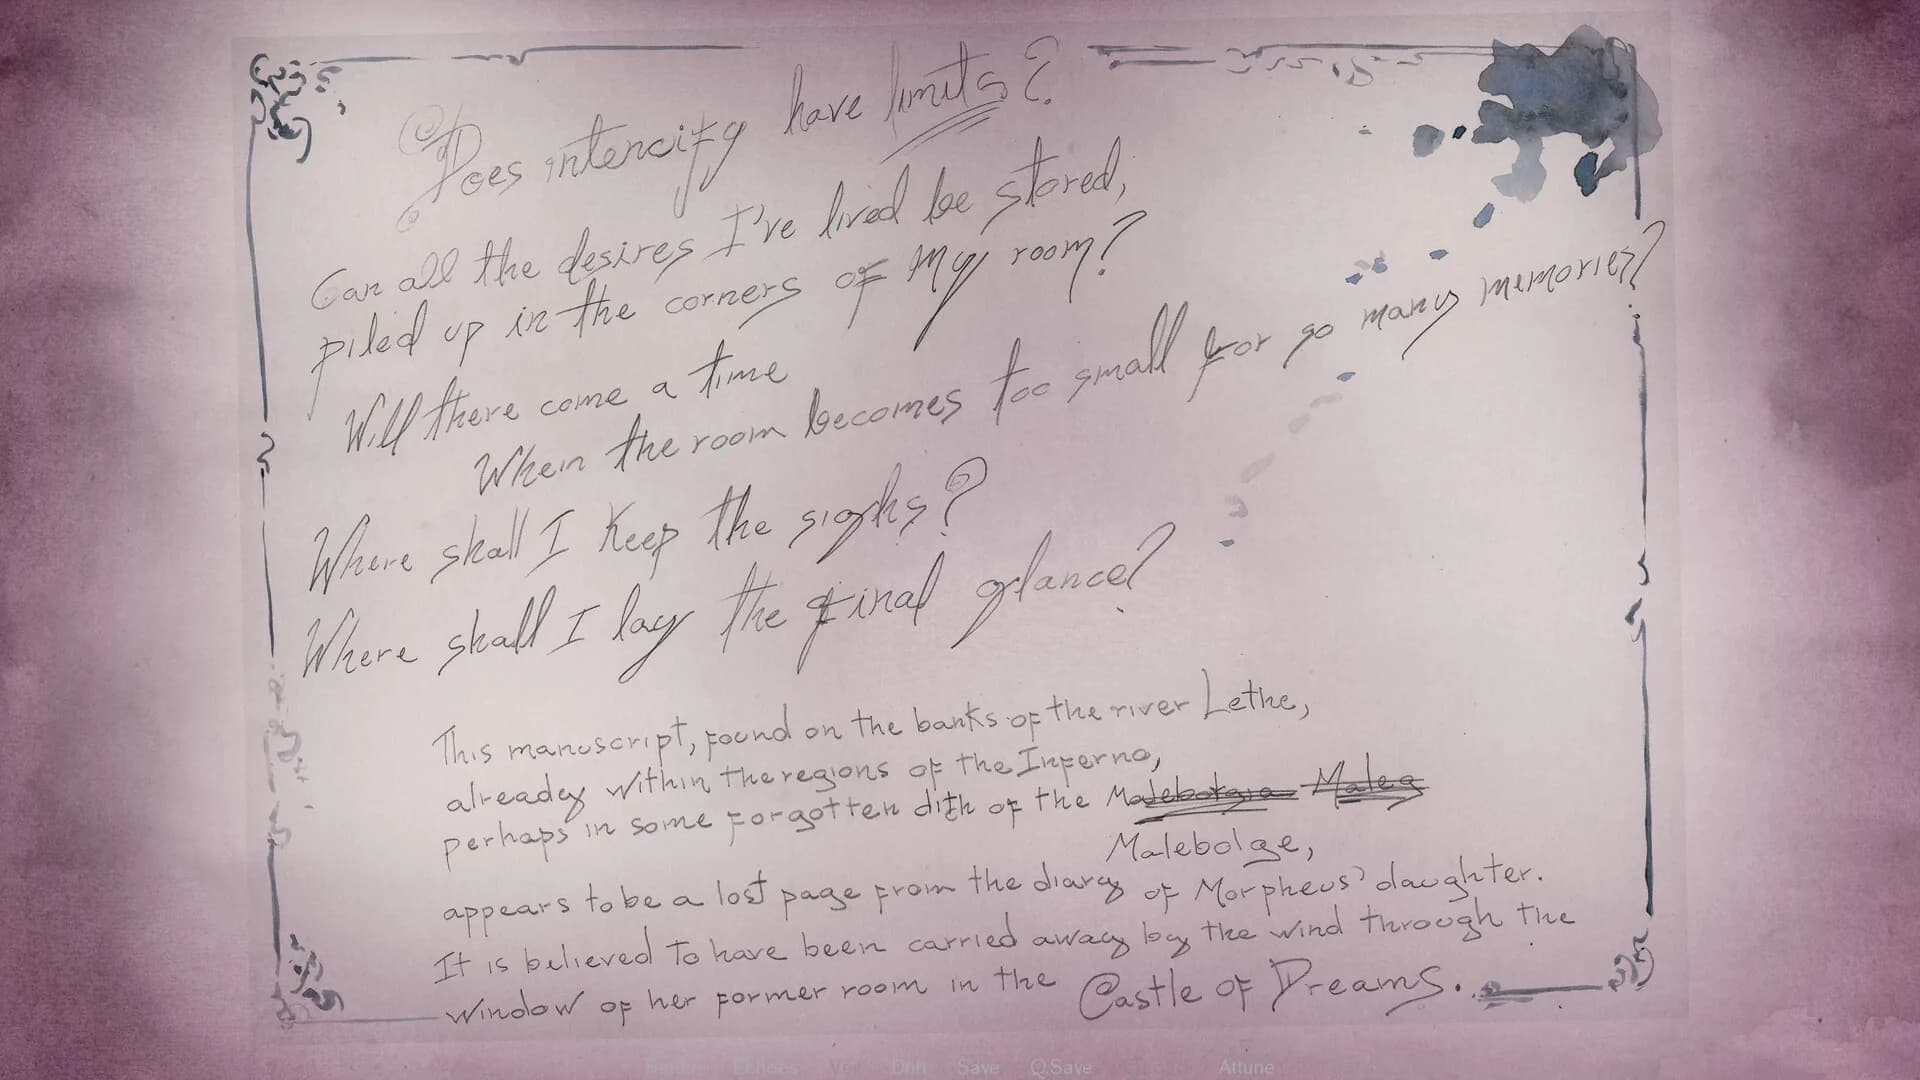 Does intencify have limits?
Can all the desires I've lived be stored,
piled up in the corners of My room?
Will there come a time
When the room becomes too small for so many memories?
Where shall I keep the sighs?
Where shall I lay the final glance?
This manuscript, found on the banks of the river Lethe,
already within the regions of the Inferno,
perhaps in some forgotten dith of the Malebolgia Maleg
Malebolge,
appears to be a lost page from the diary of Morpheus' daughter.
It is believed to have been carried away by the wind through the
window of her former room in the Castle of Dreams.
Echoes Drift Save Q.Save Attune